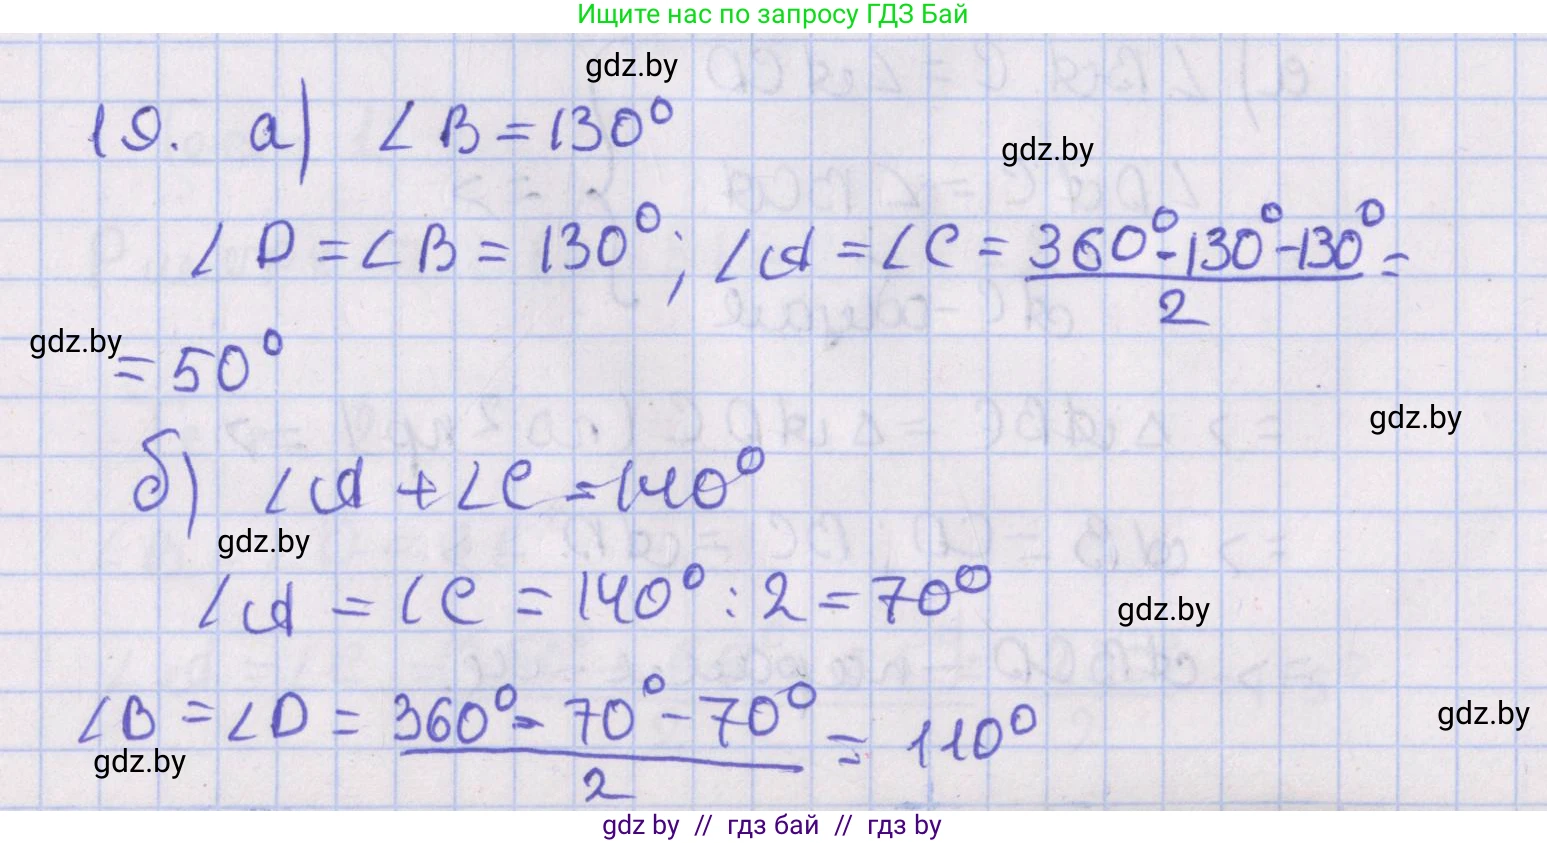 Ищите нас по запросу ГДЗ Бай
gdz.by
19. а) ∠B = 130°
gdz.by
∠D = ∠B = 130°; ∠A = ∠C = (360° - 130° - 130°)/2 =
gdz.by
= 50°
gdz.by
б) ∠A + ∠C = 140°
gdz.by
∠A = ∠C = 140° : 2 = 70°
gdz.by
∠B = ∠D = (360° - 70° - 70°)/2 = 110°
gdz.by
gdz.by
gdz by // гдз бай // гдз by